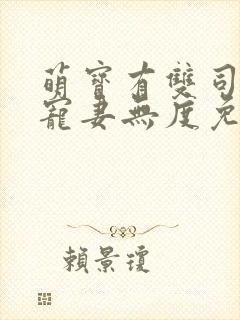 萌寶有雙司
寵妻無度免
賴景瓊